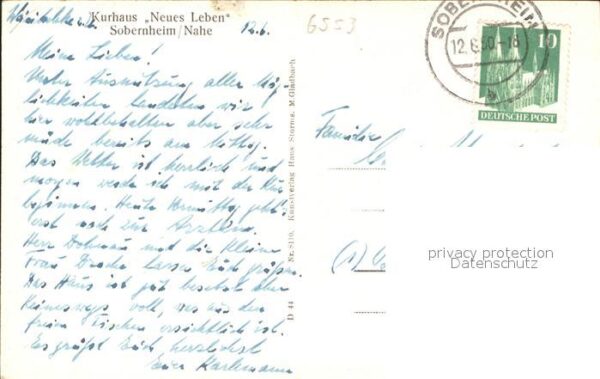 Kurhaus „Neues Leben"
Sobernheim/Nahe
12.6.
6553
Meine Lieben!
Unter Ausnützung aller Mög-
lichkeiten landeten wir
hier wohlbehalten aber sehr
müde bereits am Mittag.
Das Wetter ist herrlich und
morgen werde ich mit der Kur
beginnen. Heute Vormittag geht's
erst noch zur Ärztin.
Herr und die Kleine
Frau lassen Euch grüßen.
Das Haus ist gut besetzt aber
keineswegs voll, was aus den
freien Tischen ersichtlich ist.
Es grüßt Euch herzlichst
Euer
Nr. 8110. Kunstverlag Hans Storms, M.Gladbach
D 44
SOBERNHEIM
12.6.50-18
a
10
DEUTSCHE POST
Familie
privacy protection
Datenschutz